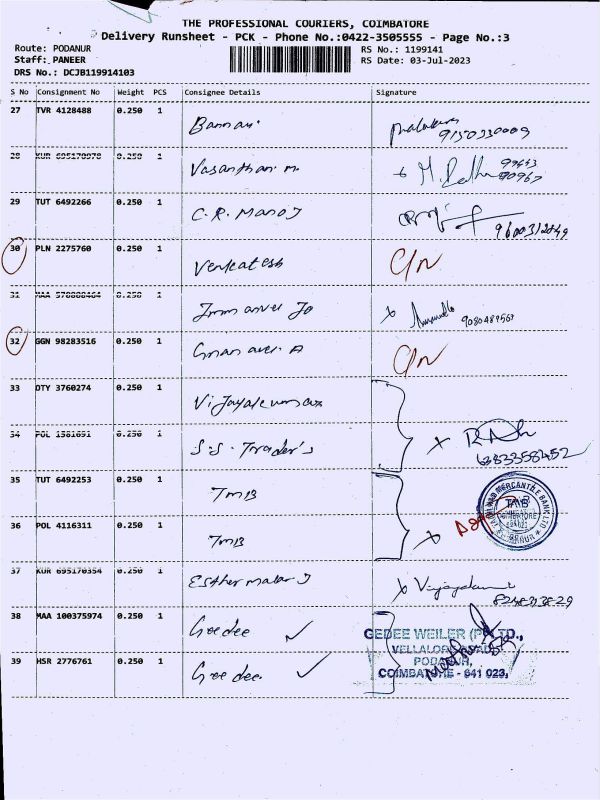 THE PROFESSIONAL COURIERS, COIMBATORE
Delivery Runsheet - PCK - Phone No.:0422-3505555 - Page No.:3
Route: PODANUR RS No.: 1199141
Staff: PANEER RS Date: 03-Jul-2023
DRS No.: DCJB119914103
S No Consignment No Weight PCS Consignee Details Signature
27 TVR 4128488 0.250 1 Bannari
9150330009
28 KUR 695170978 0.250 1 Vasanthan m
29 TUT 6492266 0.250 1 C.R. Manoj
30 PLN 2275760 0.250 1 Venkatesh C/N
31 MAA 578888464 0.250 1 Immanuel Jo
32 GGN 98283516 0.250 1 Gnanavel A C/N
33 DTY 3760274 0.250 1 Vijayakumar
34 POL 1581691 0.250 1 S.S. Trader's
6383358452
35 TUT 6492253 0.250 1 TMB
36 POL 4116311 0.250 1 TMB
37 KUR 695170354 0.250 1 Esther malar J
38 MAA 100375974 0.250 1 Geedee
GEDEE WEILER (P) LTD.,
39 HSR 2776761 0.250 1 Geedee
PODANUR,
COIMBATORE - 641 023.